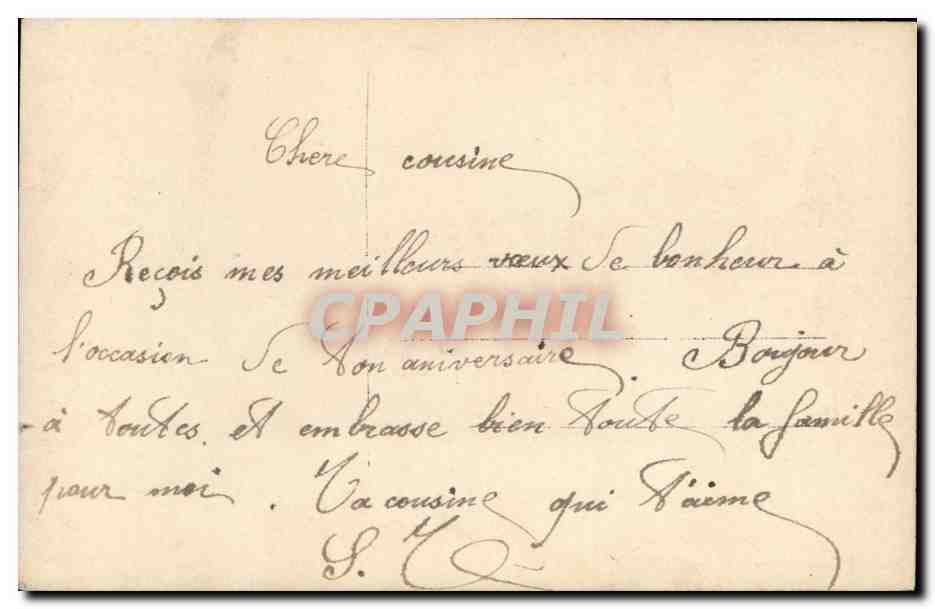 Chere cousine
Reçois mes meilleurs vœux de bonheur à
CPAPHIL
l'occasion de ton aniversaire. Bonjour
à toutes et embrasse bien toute la famille
pour moi. Ta cousine qui t'aime
S. T